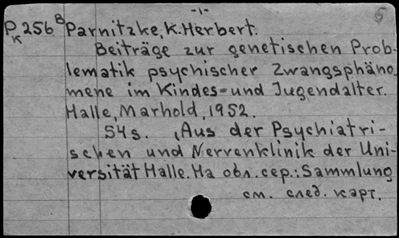 -1- 5
P 256 B Parnitzke, K. Herbert.
K Beiträge zur genetischen Prob-
lematik psychischer Zwangsphäno
mene im Kindes- und Jugendalter.
Halle, Marhold, 1952.
54 s. (Aus der Psychiatri-
schen und Nervenklinik der Uni-
versität Halle. На обл. сер.: Sammlung
см. след. карт.